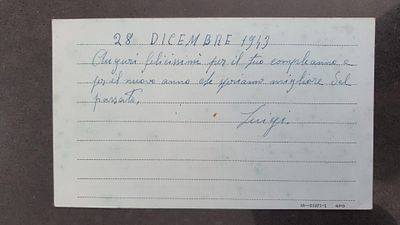 28 DICEMBRE 1943
Auguri felicissimi per il tuo compleanno e
per il nuovo anno che speriamo migliore del
passato.
Luigi.